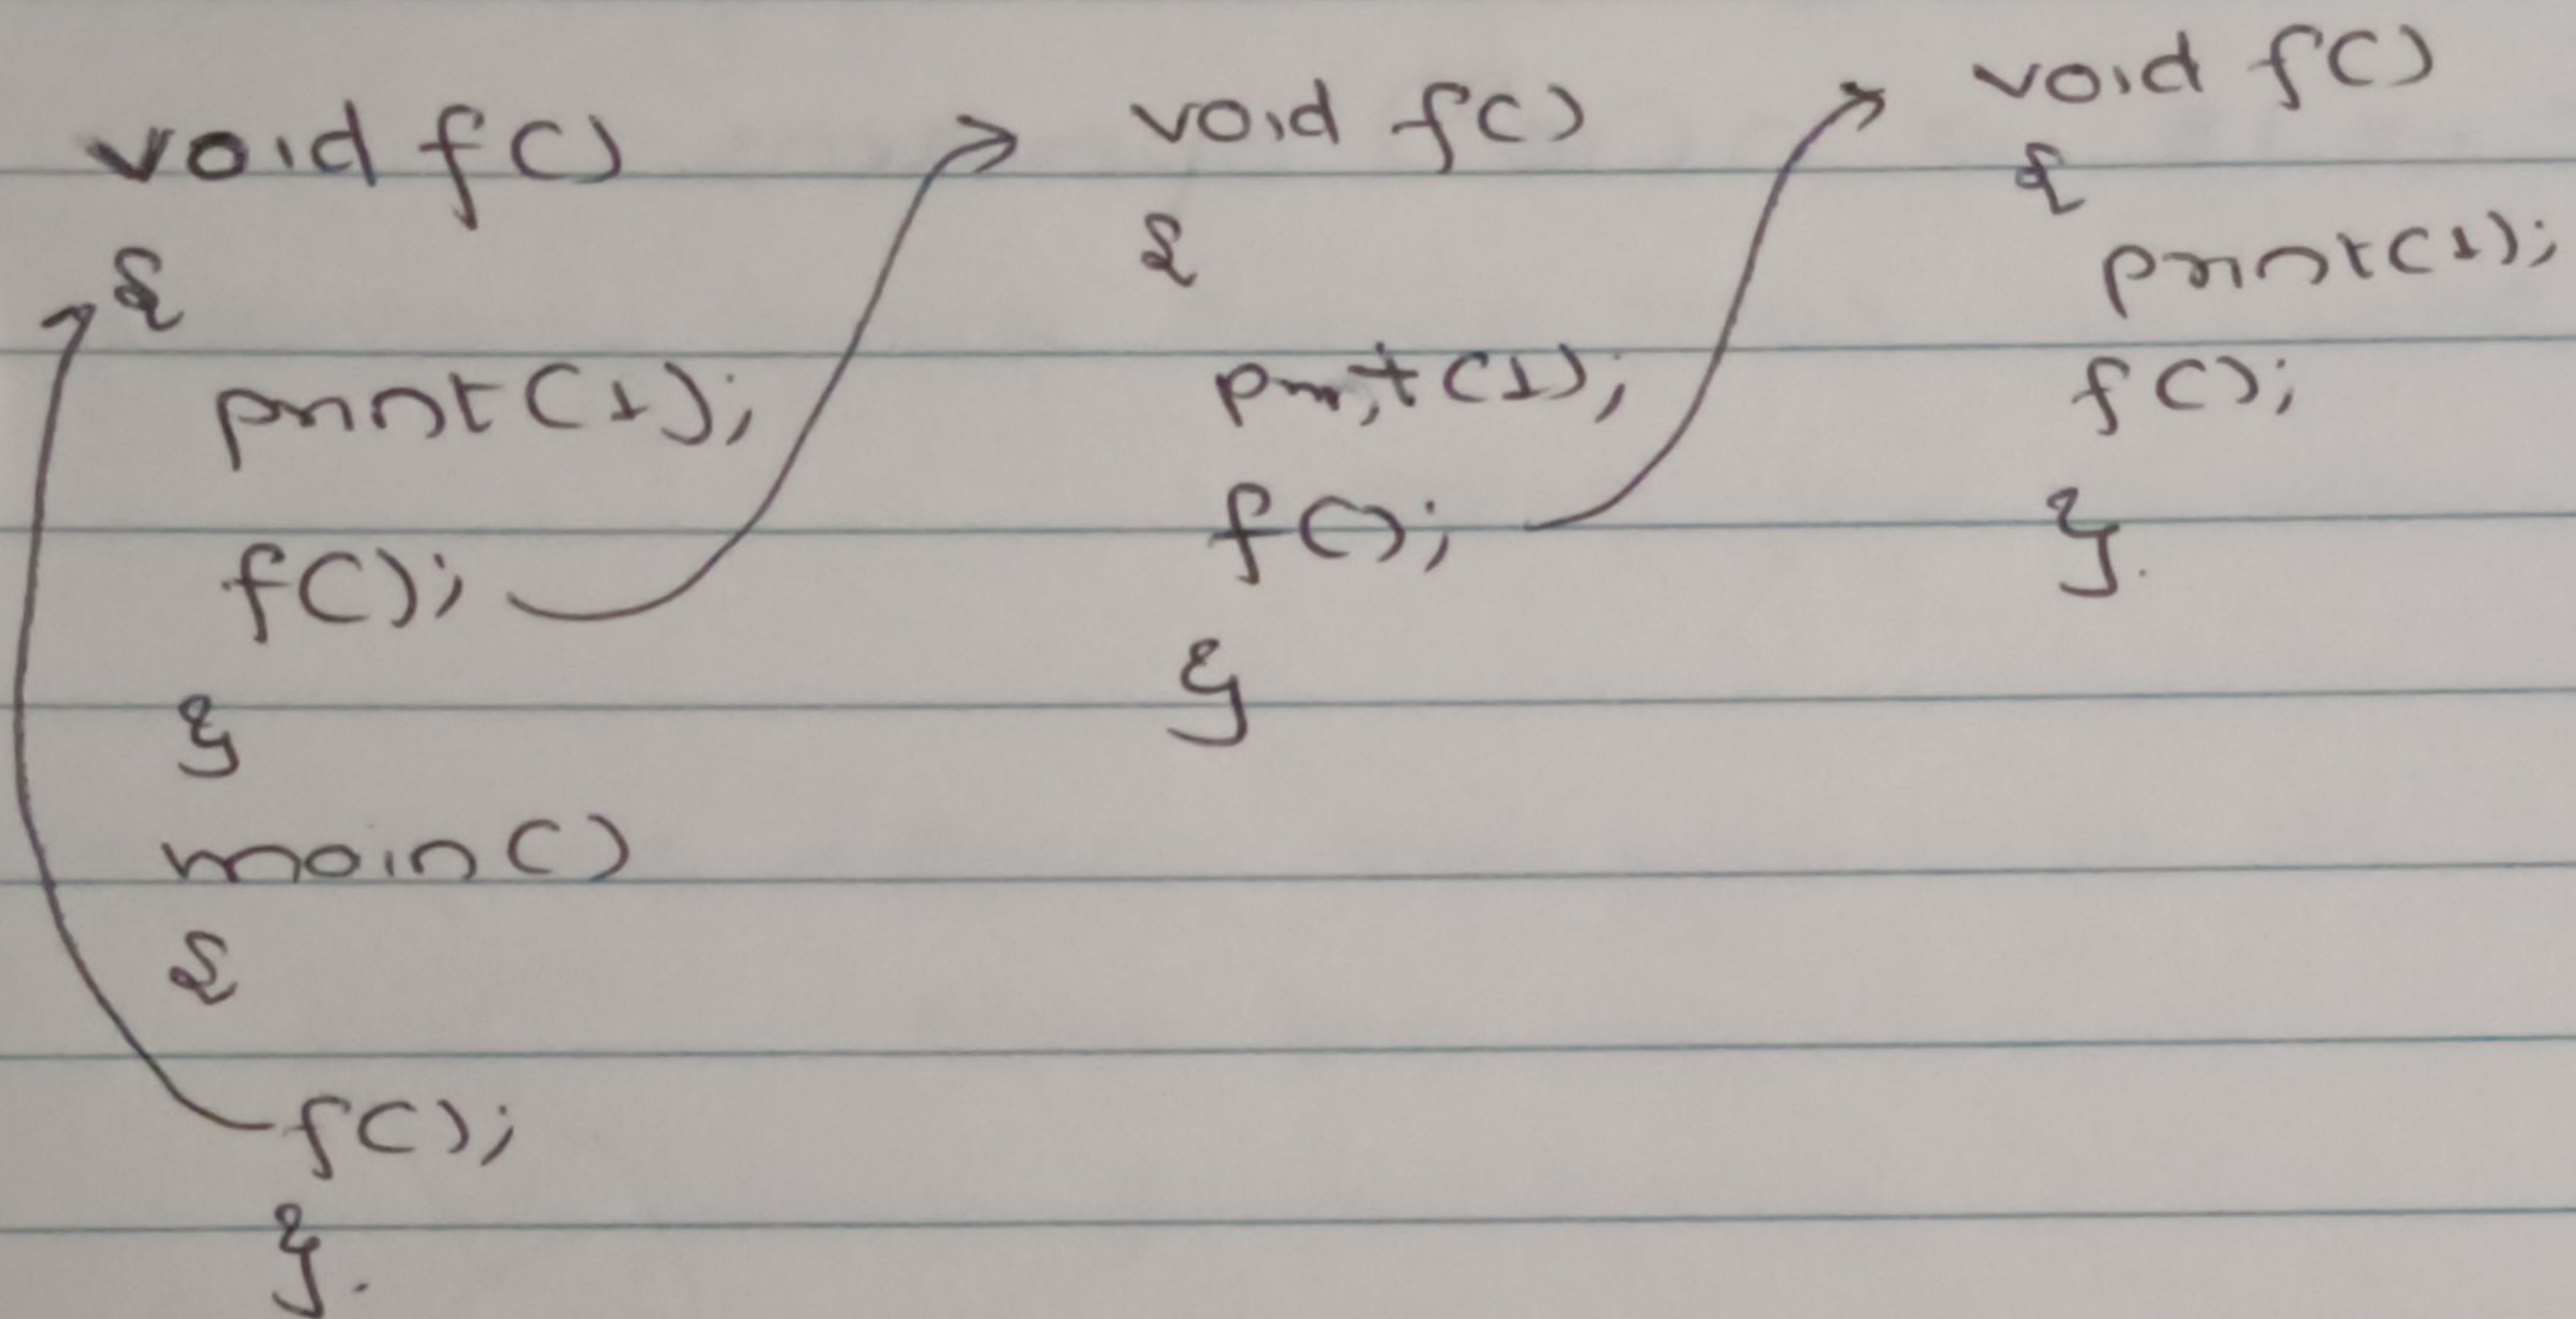 void f()
{
print(1);
f();
}
main()
{
f();
}.
void f()
{
print(1);
f();
}
void f()
{
print(1);
f();
}.